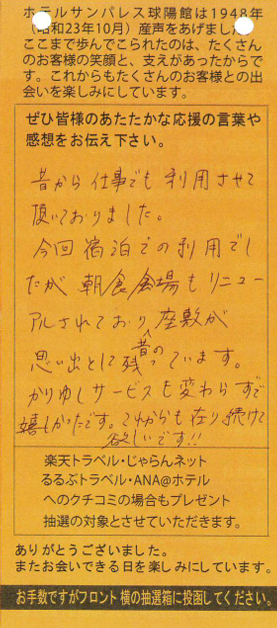 ホテルサンパレス球陽館は1948年
(昭和23年10月)産声をあげました
ここまで歩んでこられたのは、たくさん
のお客様の笑顔と、支えがあったからで
す。これからもたくさんのお客様との出
会いを楽しみにしています。
ぜひ皆様のあたたかな応援の言葉や
感想をお伝え下さい。
昔から仕事でも利用させて
頂いておりました。
今回宿泊での利用でし
たが朝食会場もリニュー
アルされており昔の座敷が
思い出として残っています。
かりゆしサービスも変わらずで
嬉しかったです。これからも在り続けて
欲しいです!!
楽天トラベル・じゃらんネット
るるぶトラベル・ANA@ホテル
へのクチコミの場合もプレゼント
抽選の対象とさせていただきます。
ありがとうございました。
またお会いできる日を楽しみにしています。
お手数ですがフロント横の抽選箱に投函してください。